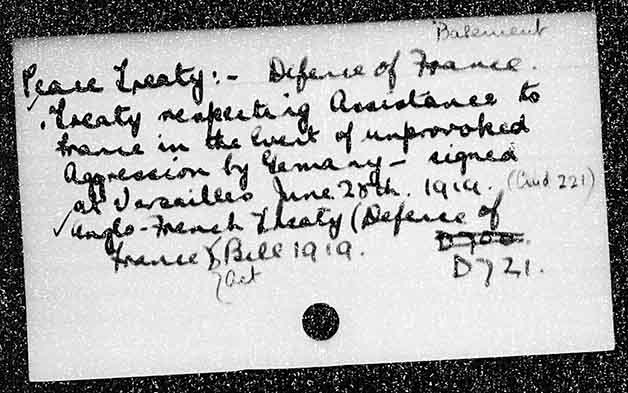 Basement
Peace Treaty:- Defence of France.
Treaty respecting Assistance to
France in the Event of unprovoked
Aggression by Germany - signed
at Versailles June 28th. 1919. (Cmd 221)
✓Anglo-French Treaty (Defence of
France) Bill 1919. D700.
Act D721.